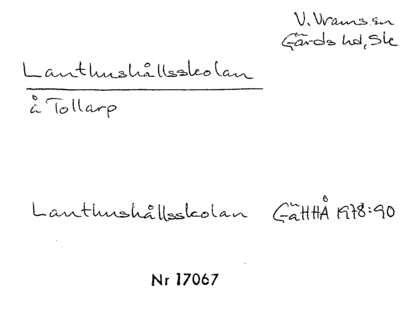 V. Vrams sn
Gärds hd, Sk
Lanthushållsskolan
å Tollarp
Lanthushållsskolan GäHHÅ 1978:90
Nr 17067